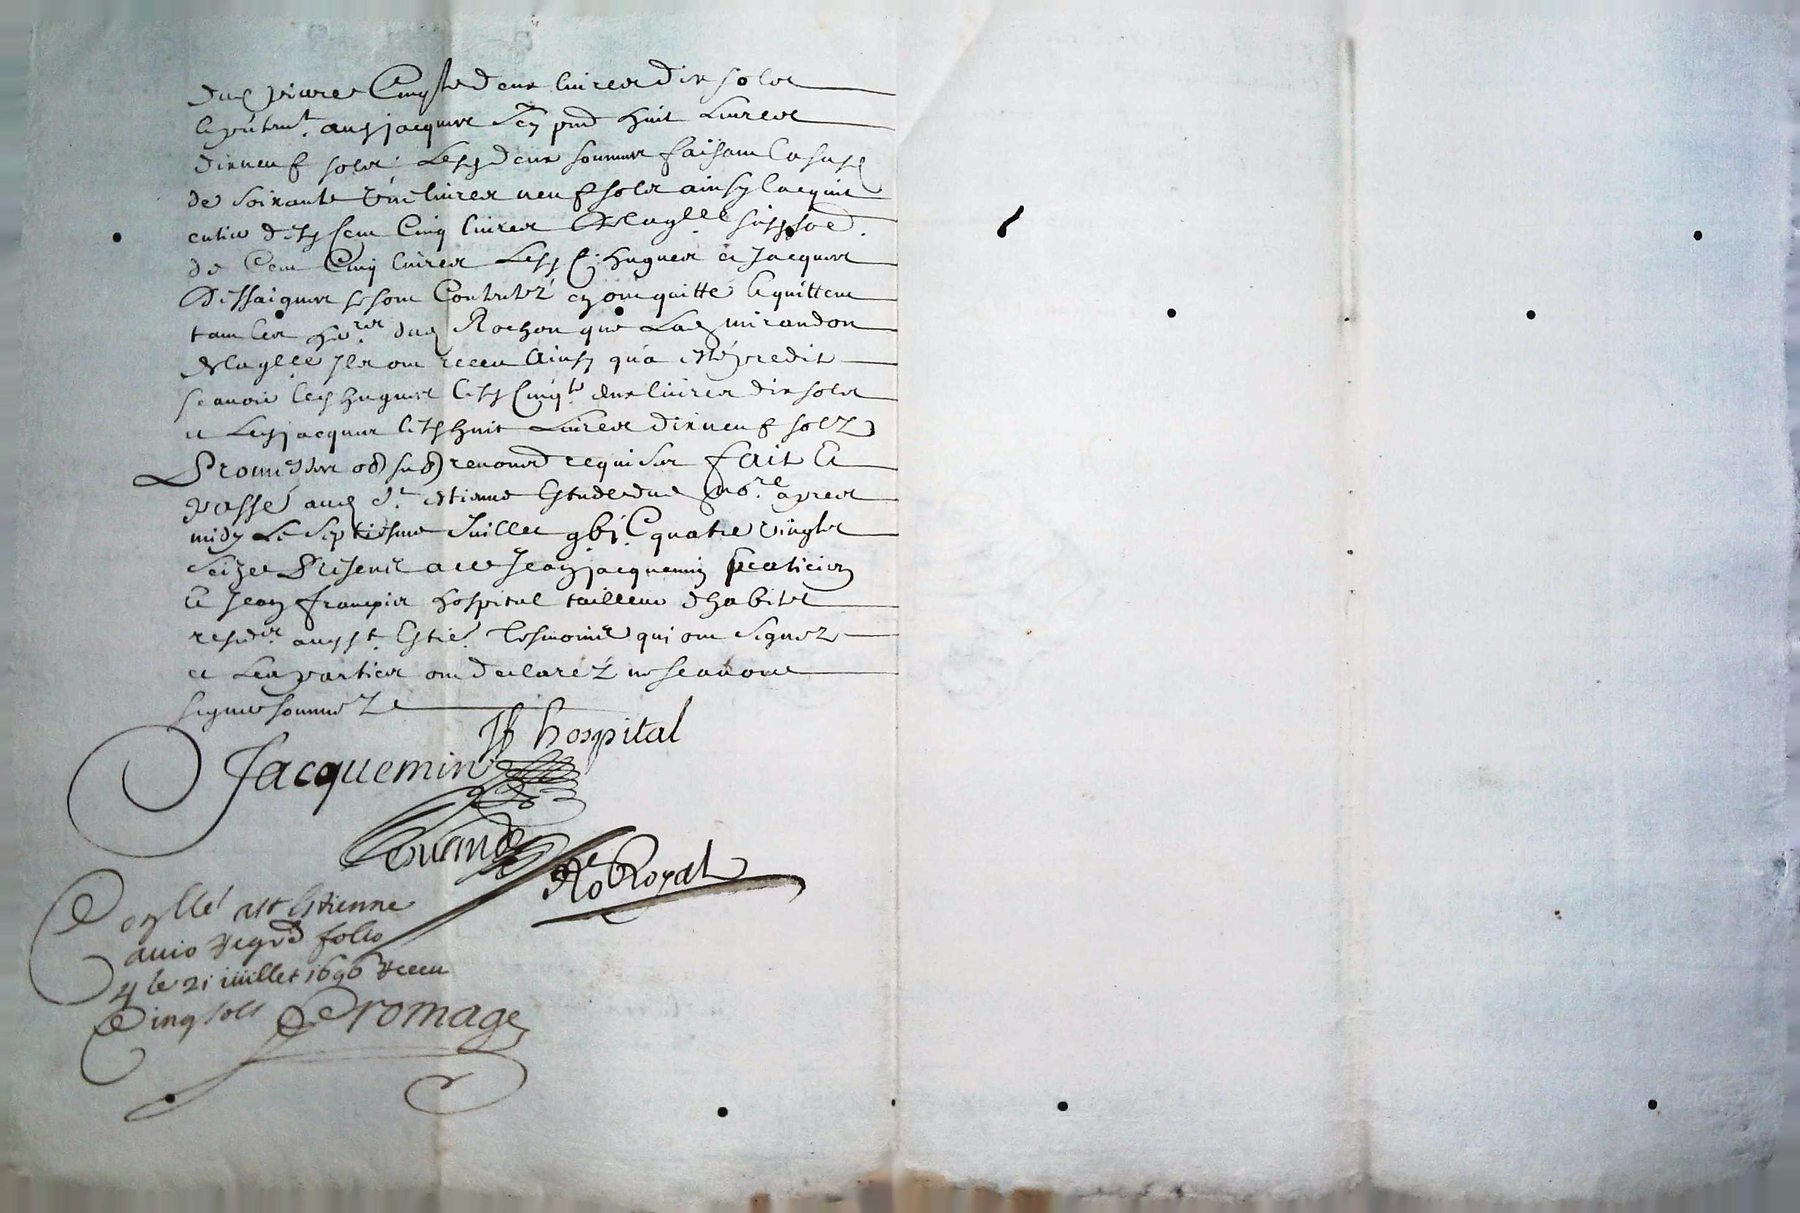 dud pierre Cinqte deux livres dix solz
audj jacques huit Livres
dix neuf solz Lesd deux sommes faisant la susd
de soixante une livres neuf solz ainsy lacquit
desd Cent Cinq livres de laqlle susd
de Cent Cinq livres Lesd hugues et Jacques
Dessaignes se sont Contentez en ont quitte et quittent
tant les dud Rochon que Lad mirandon
de laqlle Ilz ont receu Ainsy qu'a esté predit
scavoir led hugues lesd Cinqte deux livres dix solz
et Led jacques lesd huit Livres dix neuf solz
Promesses obg sub renond requises fait et
passé aud St estienne estude du nore apres
midy Le Septiesme Juillet gbj C quatre vingtz
seize Presentz a ce Jean jacquemin praticien
et Jean françois hospital tailleur d'habitz
residtz aud St Estie tesmoins qui ont signez
et Les parties ont declarez ne scavoir
signer sommez
Jf hospital
Jacquemin
No Royal
Conllé a St Estienne
folio
4 le 21 juillet 1696 receu
Cinq solz Fromage